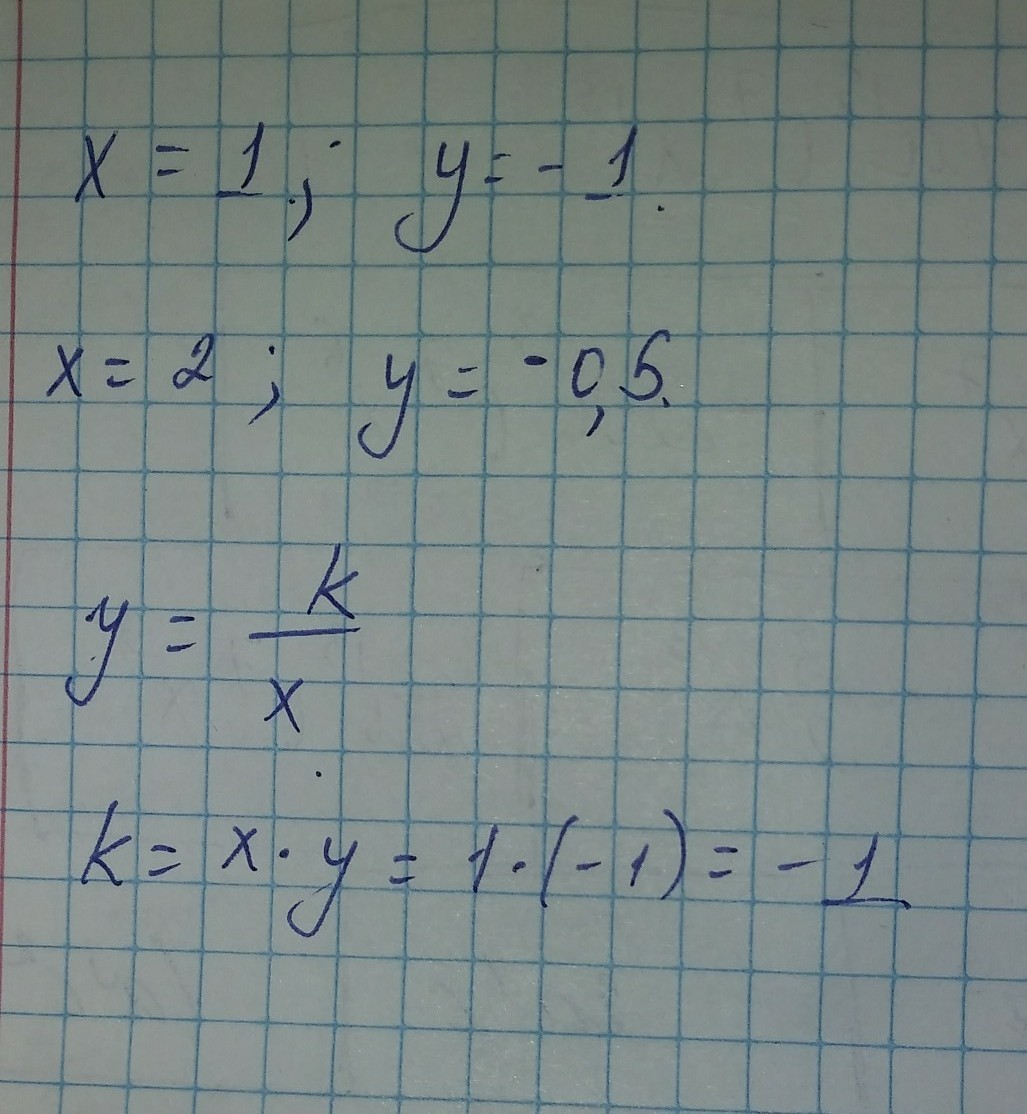 x = 1; y = - 1.
x = 2; y = -0,5.
y = k/x
k = x · y = 1 · (-1) = - 1